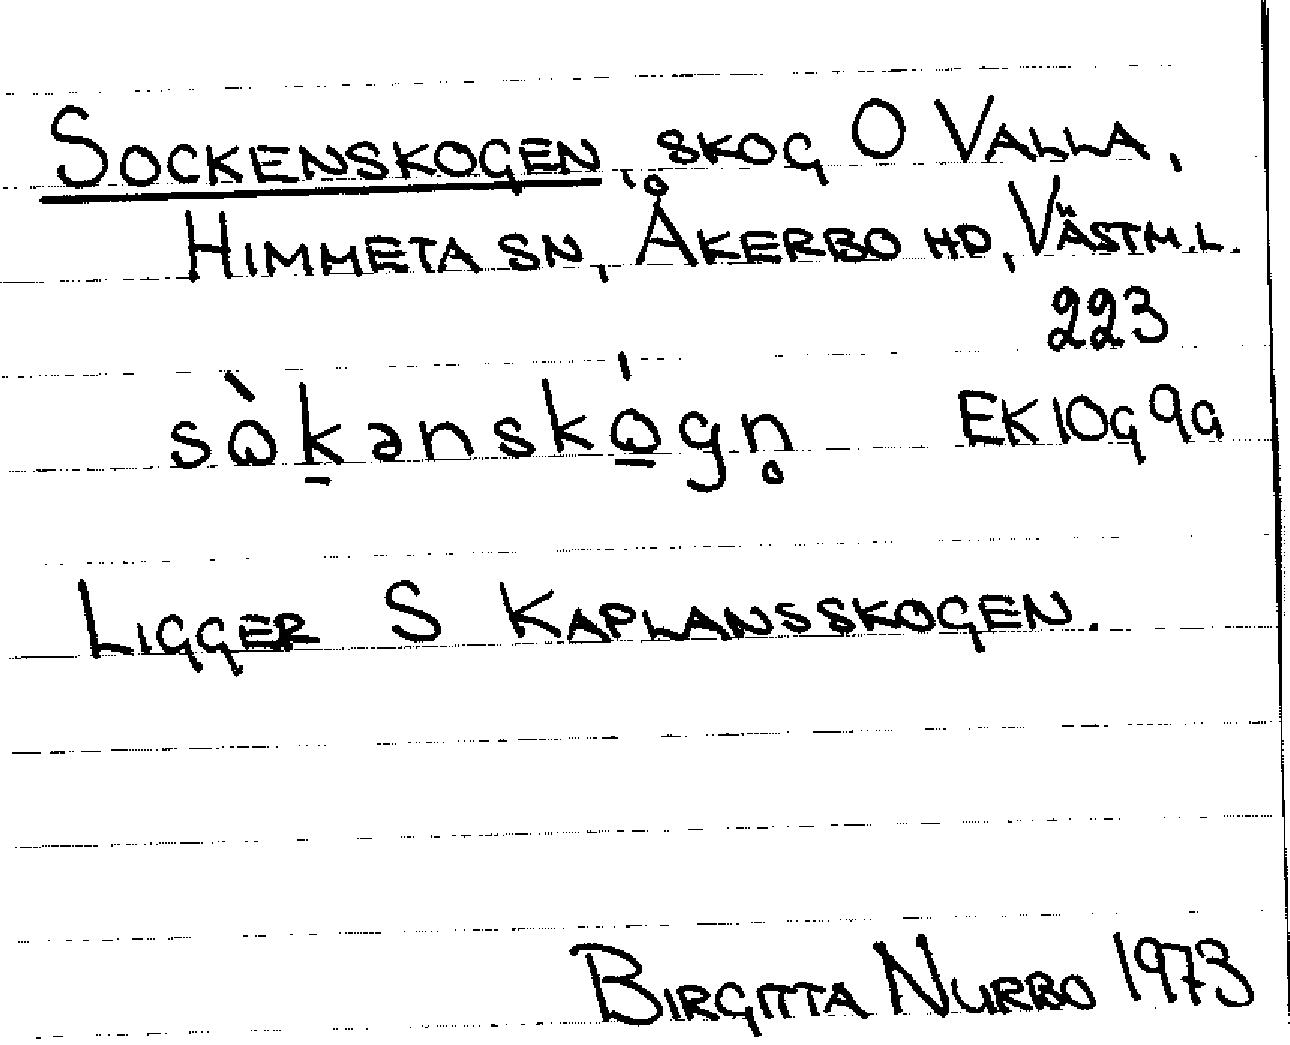 SOCKENSKOGEN, SKOG O VALLA,
HIMMETA SN, ÅKERBO HD, VÄSTM.L.
223
sὼk̠ənskώ̠gn̥ EK 10G 9a
LIGGER S KAPLANSSKOGEN.
BIRGITTA NURBO 1973